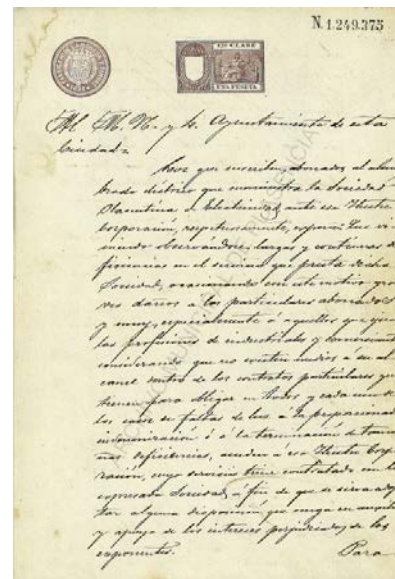 N. 1.249.375
11ª CLASE
UNA PESETA
Al M. N. y L. Ayuntamiento de esta
Ciudad
Los que suscriben, abonados al alum
brado eléctrico que suministra la Sociedad
Placentina de Electricidad, ante esa Ilustre
Corporación, respetuosamente, exponen: Que vi
niendo observándose largas y continuas de
ficiencias en el servicio que presta dicha
Sociedad, ocasionando con este motivo gra
ves daños a los particulares abonados
y muy especialmente á aquellos que ejercen
las profesiones de industriales y comerciantes
considerando que no existen medios a su al
cance dentro de los contratos particulares que
tienen para obligar en todos y cada uno de
los casos de faltas de luz, á la proporcionada
indemnización ó á la terminación de tama
ñas deficiencias, acuden a esa Ilustre Corpo
ración, cuyo servicio tiene contratado con la
expresada Sociedad, á fin de que se sirva adop
tar alguna disposición que venga en auxilio
y apoyo de los intereses perjudicados de los
exponentes.
Para